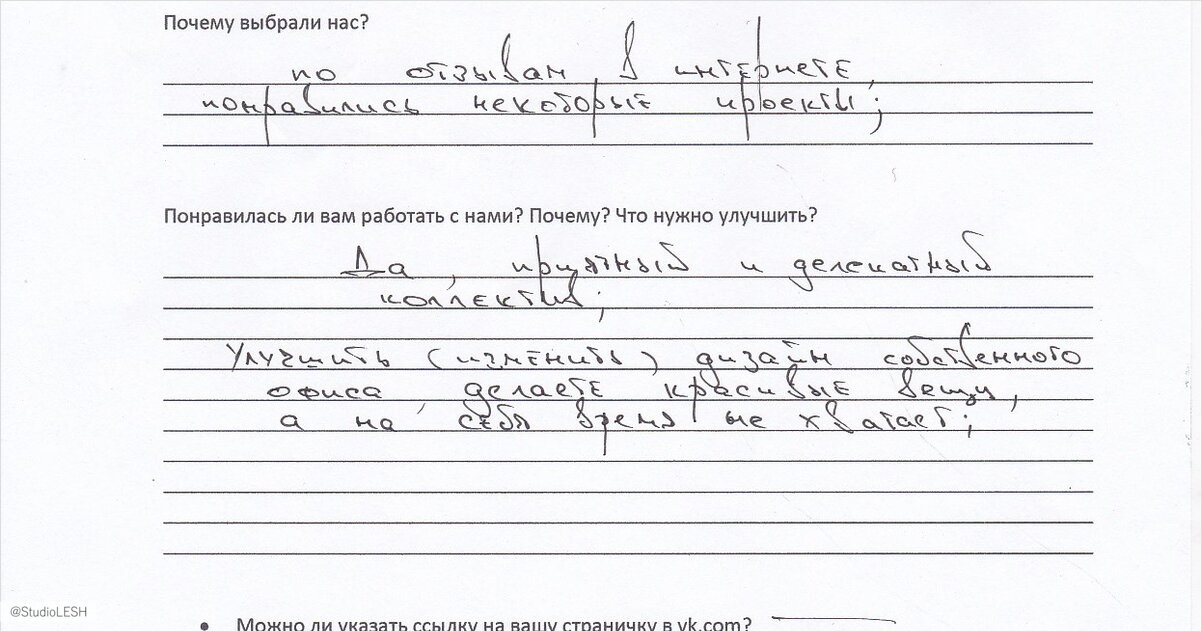 Почему выбрали нас?
по отзывам в интернете,
понравились некоторые проекты;
Понравилась ли вам работать с нами? Почему? Что нужно улучшить?
Да, приятный и деликатный
коллектив;
Улучшить (изменить) дизайн собственного
офиса, делаете красивые вещи,
а на себя время не хватает;
@StudioLESH
• Можно ли указать ссылку на вашу страничку в vk.com? —